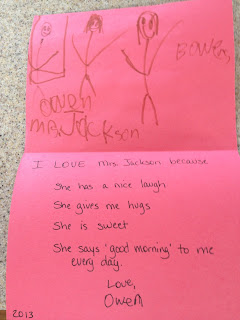 Bowen,
Owen
Mrs. Jackson
I LOVE Mrs. Jackson because
She has a nice laugh
She gives me hugs
She is sweet
She says 'good morning' to me
every day.
Love,
Owen
2013